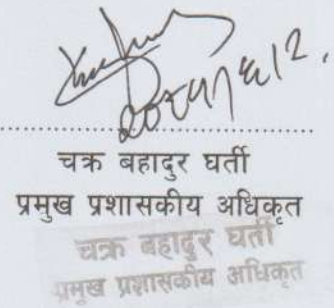 चक्र बहादुर घर्ती
प्रमुख प्रशासकीय अधिकृत
चक्र बहादुर घर्ती
प्रमुख प्रशासकीय अधिकृत